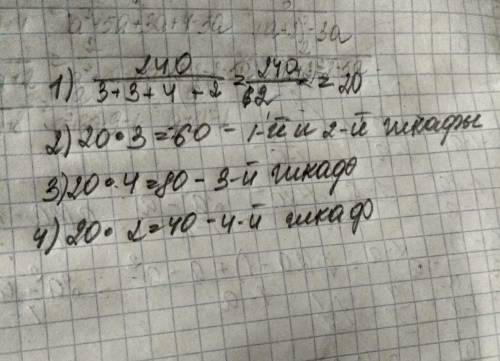 1) 240/(3+3+4+2) = 240/12 = 20
2) 20·3=60 - 1-й и 2-й шкафы
3) 20·4=80 - 3-й шкаф
4) 20·2=40 - 4-й шкаф